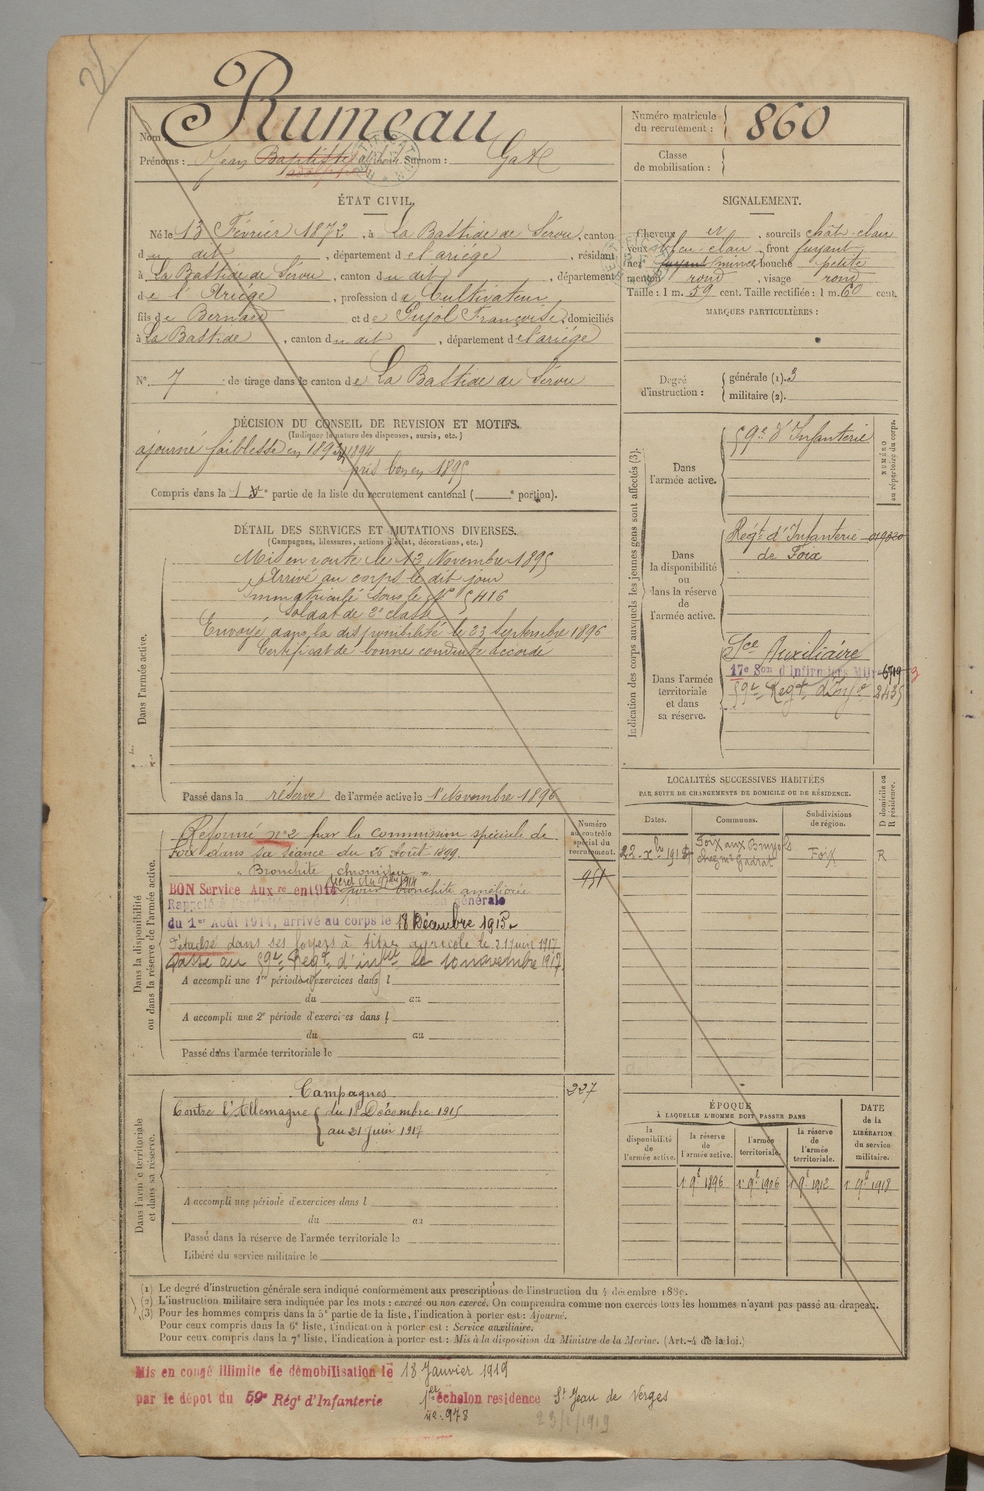 Nom : Rumeau
Prénoms : Jean Baptiste Surnom :
Numéro matricule
du recrutement : 860
Classe
de mobilisation :
ÉTAT CIVIL.
Né le 13 Février 1872, à La Bastide de Sérou, canton
du dit, département de l'ariége, résidant
à La Bastide de Sérou, canton du dit, département
de l'Ariège, profession de Cultivateur
fils de Bernard et de Pujol Françoise, domiciliés
à La Bastide, canton du dit, département de l'ariége
N° 7 de tirage dans le canton de La Bastide de Sérou
SIGNALEMENT.
Cheveux, sourcils chât. clair
yeux bleu clair, front fuyant
nez fuyant mince, bouche petite
menton rond, visage rond
Taille : 1 m. 59 cent. Taille rectifiée : 1 m. 60 cent.
MARQUES PARTICULIÈRES :
Degré
d'instruction :
générale (1). 3
militaire (2).
DÉCISION DU CONSEIL DE REVISION ET MOTIFS.
(Indiquer la nature des dispenses, sursis, etc.)
ajourné faiblesse en 1893, 1894
pris bon en 1895
Compris dans la partie de la liste du recrutement cantonal ( e portion).
DÉTAIL DES SERVICES ET MUTATIONS DIVERSES.
(Campagnes, blessures, actions d'éclat, décorations, etc.)
Dans l'armée active.
Mis en route le 13 Novembre 1895
Arrivé au corps le dit jour
Immatriculé sous le N° 5416
Soldat de 2e classe
Envoyé dans la disponibilité le 23 Septembre 1896
Certificat de bonne conduite accordé
Passé dans la réserve de l'armée active le 1r Novembre 1896
Indication des corps auxquels les jeunes gens sont affectés (3).
NUMÉRO
au répertoire du corps.
Dans
l'armée active.
59e d'Infanterie
Dans
la disponibilité
ou
dans la réserve
de
l'armée active.
Regt d'Infanterie
de Foix
Dans l'armée
territoriale
et dans
sa réserve.
Sce Auxiliaire
17e Son d'Infirmiers Mil
59e Regt d'Infie 2435
Dans la disponibilité
ou dans la réserve de l'armée active.
Numéro
au contrôle
spécial du
recrutement.
951
Réformé n°2 par la commission spéciale de
Foix dans sa séance du 26 Août 1899.
BON Service Auxre en 1914 pour bronchite améliorée
du 1er Août 1914, arrivé au corps le 18 Décembre 1915.
Détaché dans ses foyers à titre agricole le 21 juin 1917
Passé au 59e Regt d'infie le 10 novembre 1917
A accompli une 1re période d'exercices dans l
du au
A accompli une 2e période d'exercices dans l
du au
Passé dans l'armée territoriale le
LOCALITÉS SUCCESSIVES HABITÉES
PAR SUITE DE CHANGEMENTS DE DOMICILE OU DE RÉSIDENCE.
Dates.
Communes.
Subdivisions
de région.
D domicile ou
R résidence.
Foix R
Dans l'armée territoriale
et dans sa réserve.
Campagnes 227
Contre l'Allemagne du 18 Décembre 1915
au 21 juin 1917
A accompli une période d'exercices dans l
du au
Passé dans la réserve de l'armée territoriale le
Libéré du service militaire le
ÉPOQUE
À LAQUELLE L'HOMME DOIT PASSER DANS
la
disponibilité
de
l'armée active.
la réserve
de
l'armée active.
l'armée
territoriale.
la réserve
de
l'armée
territoriale.
DATE
de la
LIBÉRATION
du service
militaire.
1r 9bre 1896 1r 9bre 1906 1r 9bre 1912 1r 9bre 1918
(1) Le degré d'instruction générale sera indiqué conformément aux prescriptions de l'instruction du 4 décembre 1889.
(2) L'instruction militaire sera indiquée par les mots : exercé ou non exercé. On comprendra comme non exercés tous les hommes n'ayant pas passé au drapeau.
(3) Pour les hommes compris dans la 5e partie de la liste, l'indication à porter est : Ajourné.
Pour ceux compris dans la 6e liste, l'indication à porter est : Service auxiliaire.
Pour ceux compris dans la 7e liste, l'indication à porter est : Mis à la disposition du Ministre de la Marine. (Art. 4 de la loi.)
Mis en congé illimité de démobilisation le 18 Janvier 1919
par le dépôt du 59e Régt d'Infanterie 1er échelon résidence St Jean de Verges
n° 978
23/1/1919